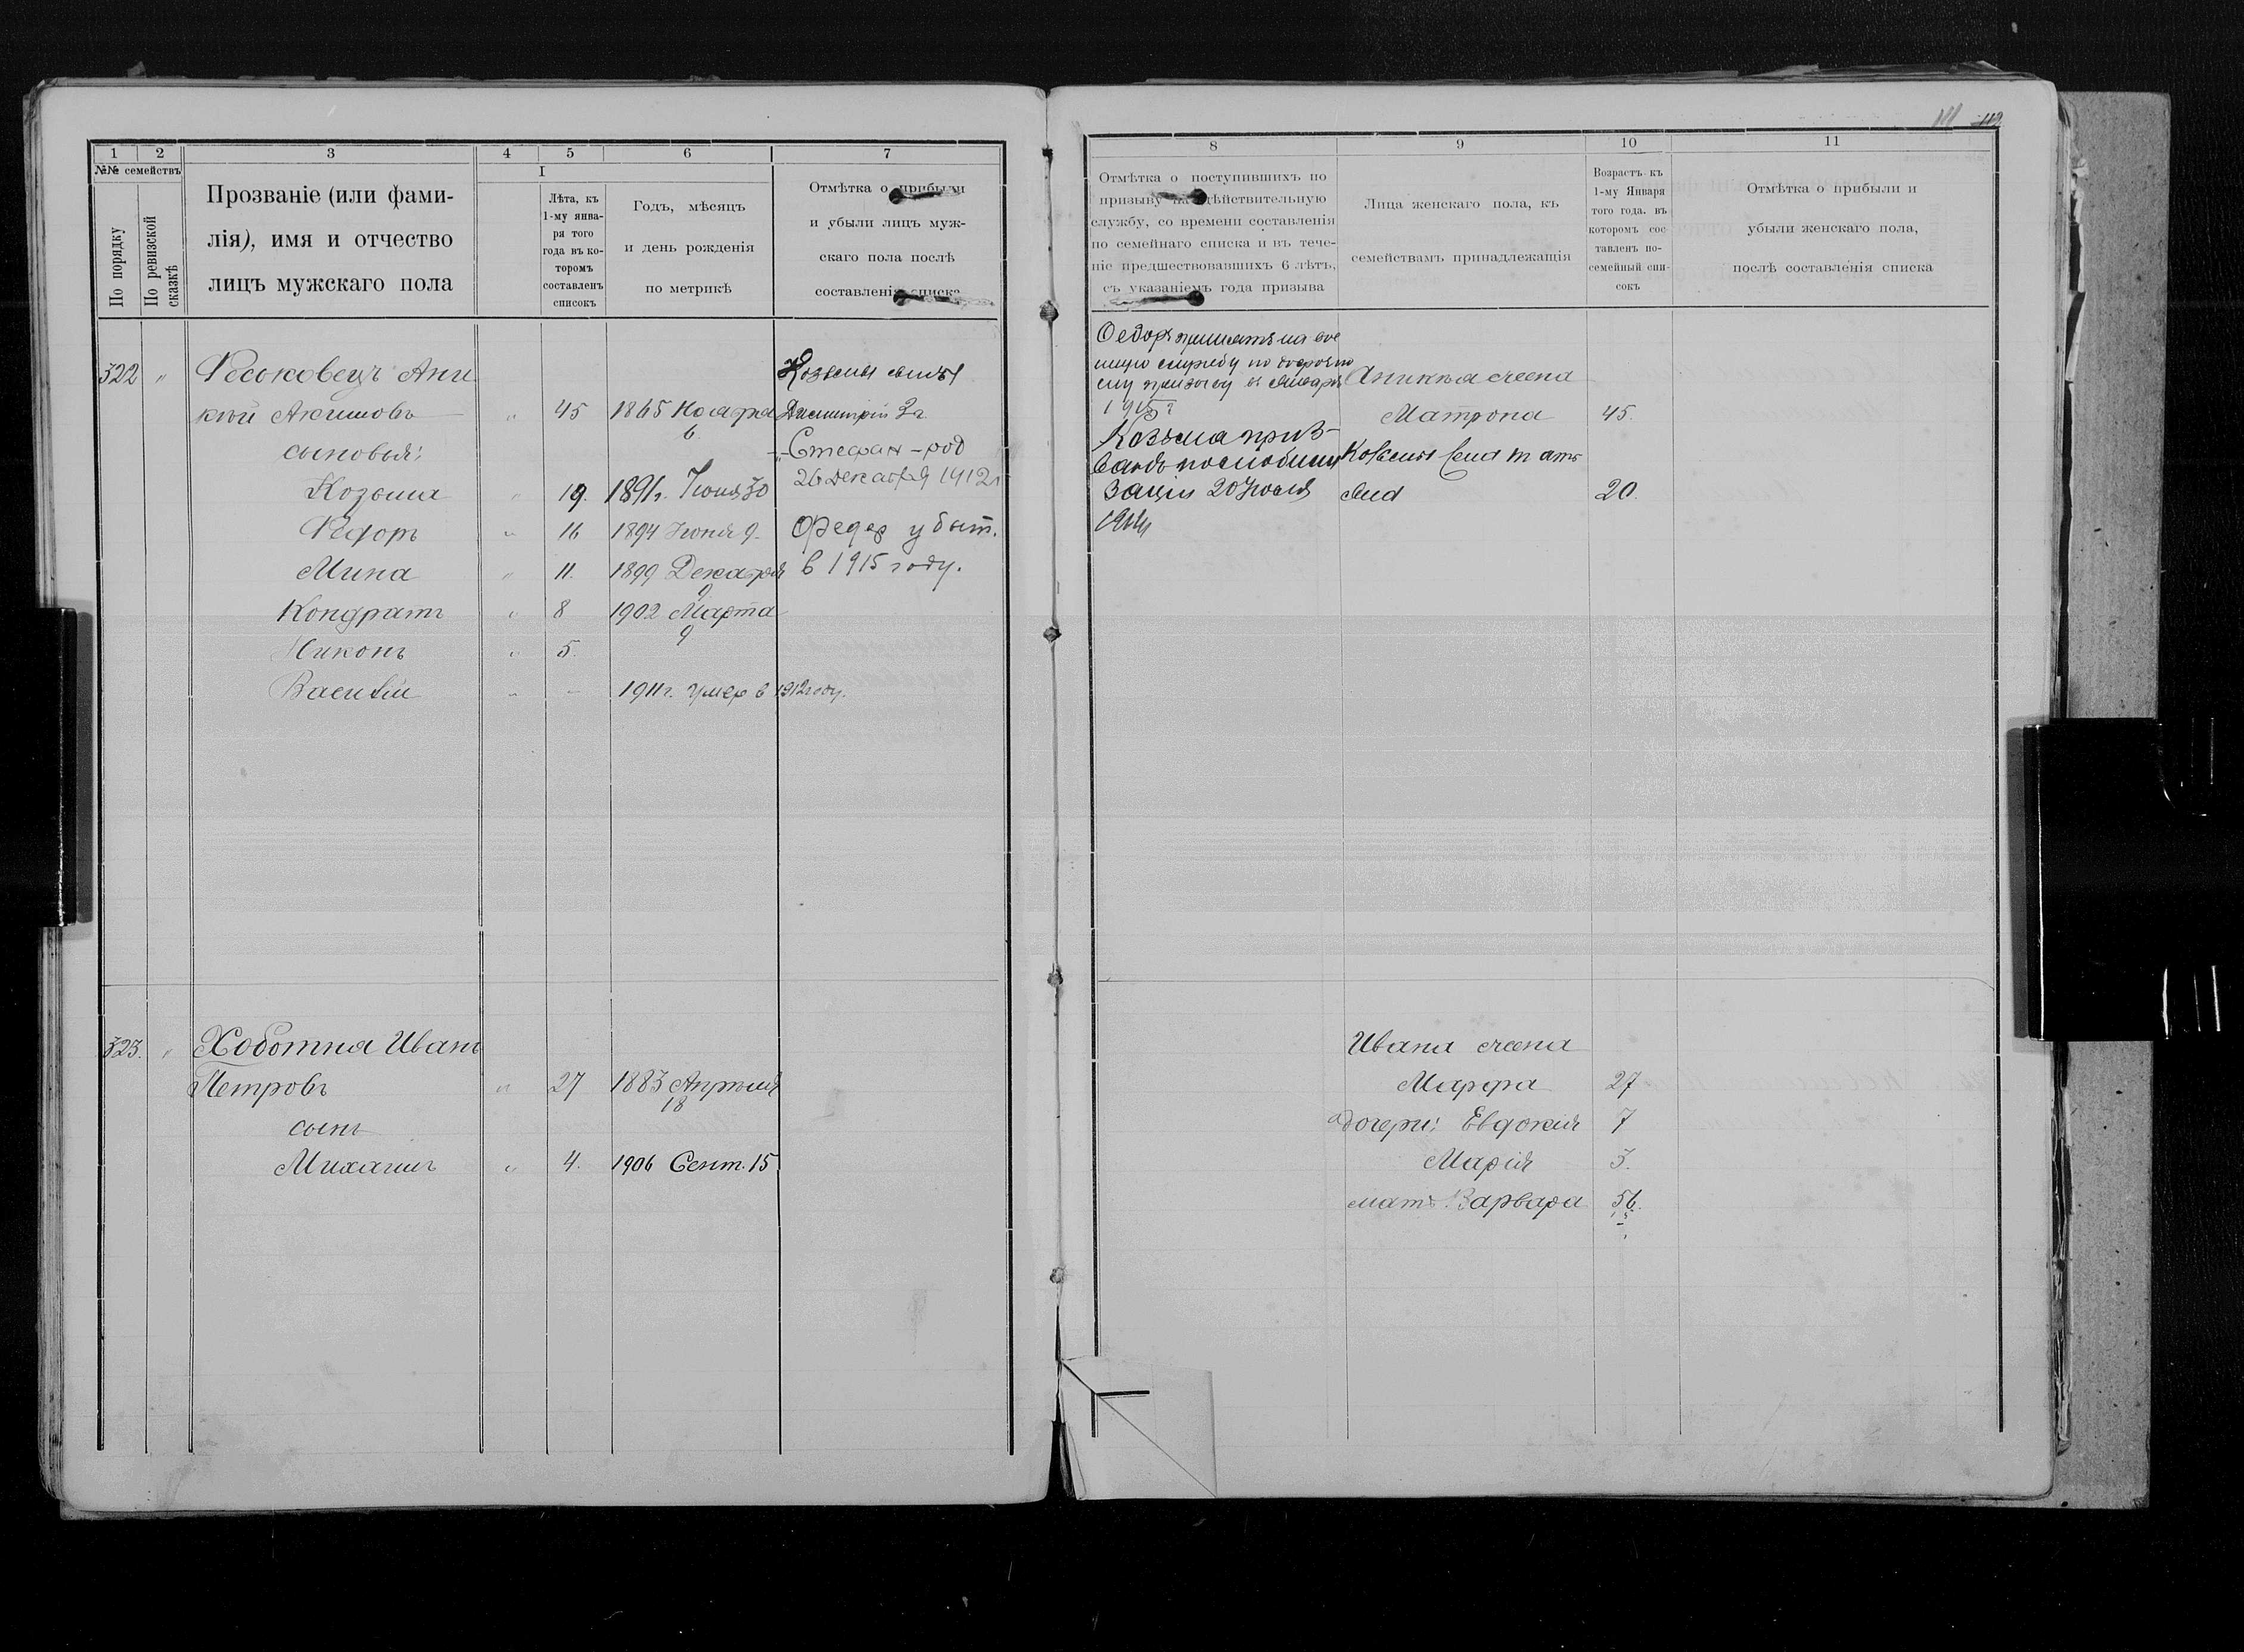 1 2 3 4 5 6 7
№№ семействъ
По порядку
По ревизской сказкѣ
Прозваніе (или фами-
лія), имя и отчество
лицъ мужскаго пола
I
Лѣта, къ
1-му янва-
ря того
года въ ко-
торомъ
составленъ
списокъ
Годъ, мѣсяцъ
и день рожденія
по метрикѣ
Отмѣтка о прибыли
и убыли лицъ муж-
скаго пола послѣ
составленія списка
322 " Феськовецъ Ани
кій Акимовъ " 45 1865 Ноября
6
сыновья:
Козьма " 19. 1891г. Іюня 30
Федоръ " 16 1894 Іюня 9.
Мина " 11. 1899 Декабря
9
Кондратъ " 8 1902 Марта
9
Никонъ " 5.
Василій " - 1911г. умер в 1912 году.
Козьмы сыны
Димитрій 2г.
Стефан - род
26 декабря 1912г
Федор убит.
в 1915 году.
323. " Хоботня Иванъ
Петровъ " 27 1883 Апрѣля
18
сынъ
Михаилъ " 4. 1906 Сент. 15
111 112
8 9 10 11
Отмѣтка о поступившихъ по
призыву на дѣйствительную
службу, со времени составленія
по семейнаго списка и въ тече-
ніе предшествовавшихъ 6 лѣтъ,
съ указаніемъ года призыва
Лица женскаго пола, къ
семействамъ принадлежащія
Возрастъ къ
1-му Января
того года. въ
которомъ сос-
тавленъ по-
семейный спи-
сокъ
Отмѣтка о прибыли и
убыли женскаго пола,
послѣ составленія списка
Федоръ принятъ на вое
нную службу по досрочно
му призыву въ Январѣ
1915 г
Козьма приз-
ванъ по мобили
заціи 20 Іюля
1914
Аникія жена
Матрона 45.
Козьмы жена
20.
Ивана жена
Марфа 27
дочери: Евдокія 7
Марія 3.
мать Варвара 56.